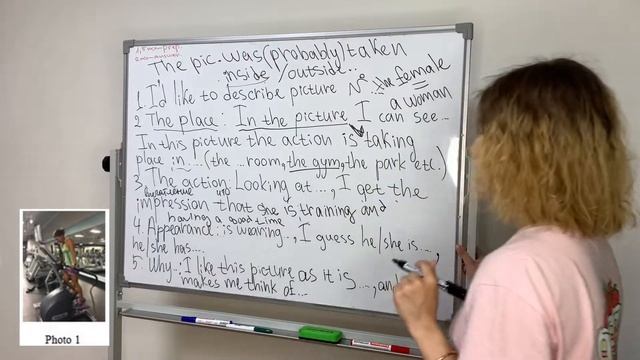 1,5 мин-prep.
2 min-answer
The pic. was (probably) taken
inside / outside...
1. I'd like to describe picture № ... the female
a woman
2 The place: In the picture I can see...
In this picture the action is taking
place in ... (the ...room, the gym, the park etc.)
3. The action Looking at..., I get the
впечатление что
impression that she is training and
having a good time
4. Appearance: is wearing .., I guess he/she is...,
he/she has...
5. Why..: I like this picture as it is ..., an
makes me think of...
Photo 1